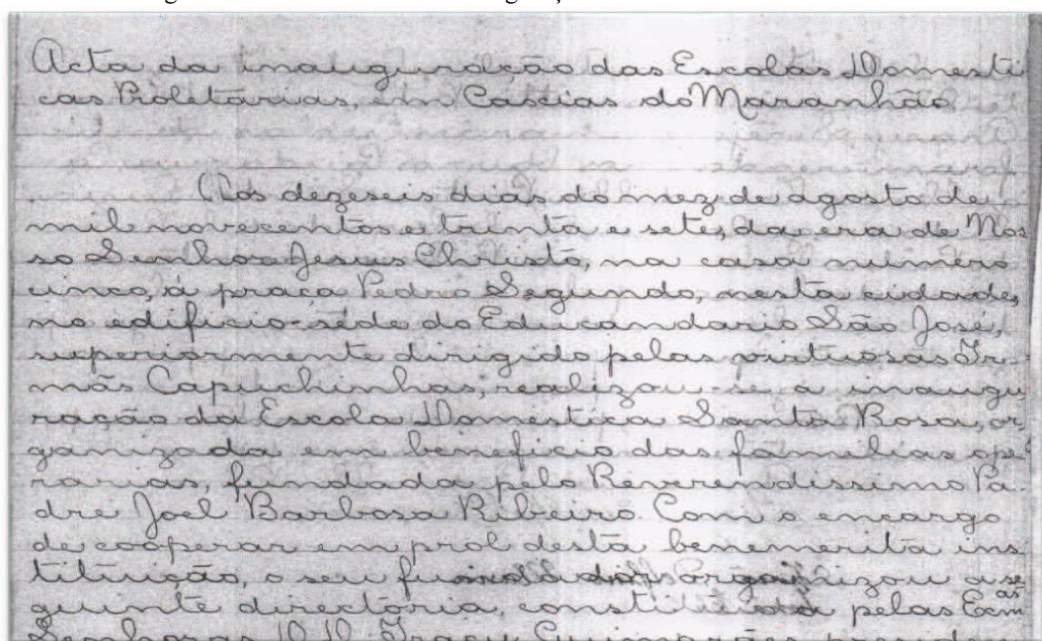 Acta da inauguração das Escolas Domesti
cas Proletarias, em Caxias do Maranhão
Aos dezeseis dias do mez de agosto de
mil novecentos e trinta e sete, da era de Nos
so Senhor Jesus Christo, na casa numero
cinco, á praça Pedro Segundo, nesta cidade,
no edificio-séde do Educandario São José,
superiormente dirigido pelas virtuosas Ir-
mãs Capuchinhas, realizou-se a inaugu
ração da Escola Domestica Santa Rosa, or
ganizada em beneficio das familias ope
rarias, fundada pelo Reverendissimo Pa-
dre Joel Barbosa Ribeiro. Com o encargo
de cooperar em prol desta benemerita ins
tituição, o seu organizou a se
guinte directoria, constituida pelas Exmas
Senhoras D.D. Guimarães